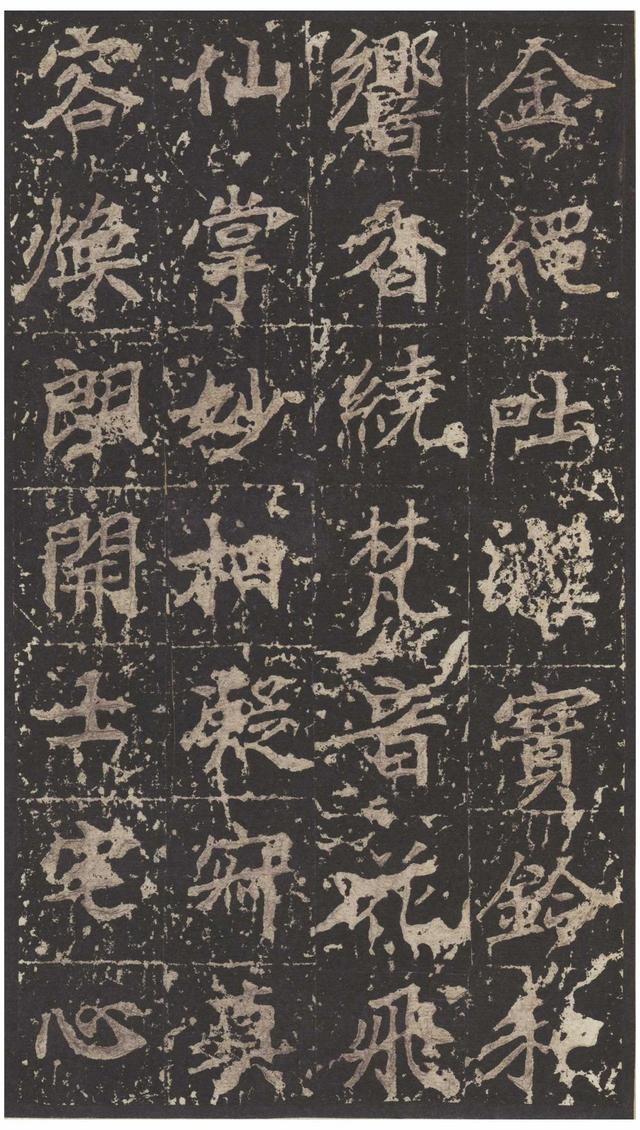 金繩吐曜寶鈴和
響香繞梵音花飛
仙掌妙相凝寂真
容煥朗開士宅心